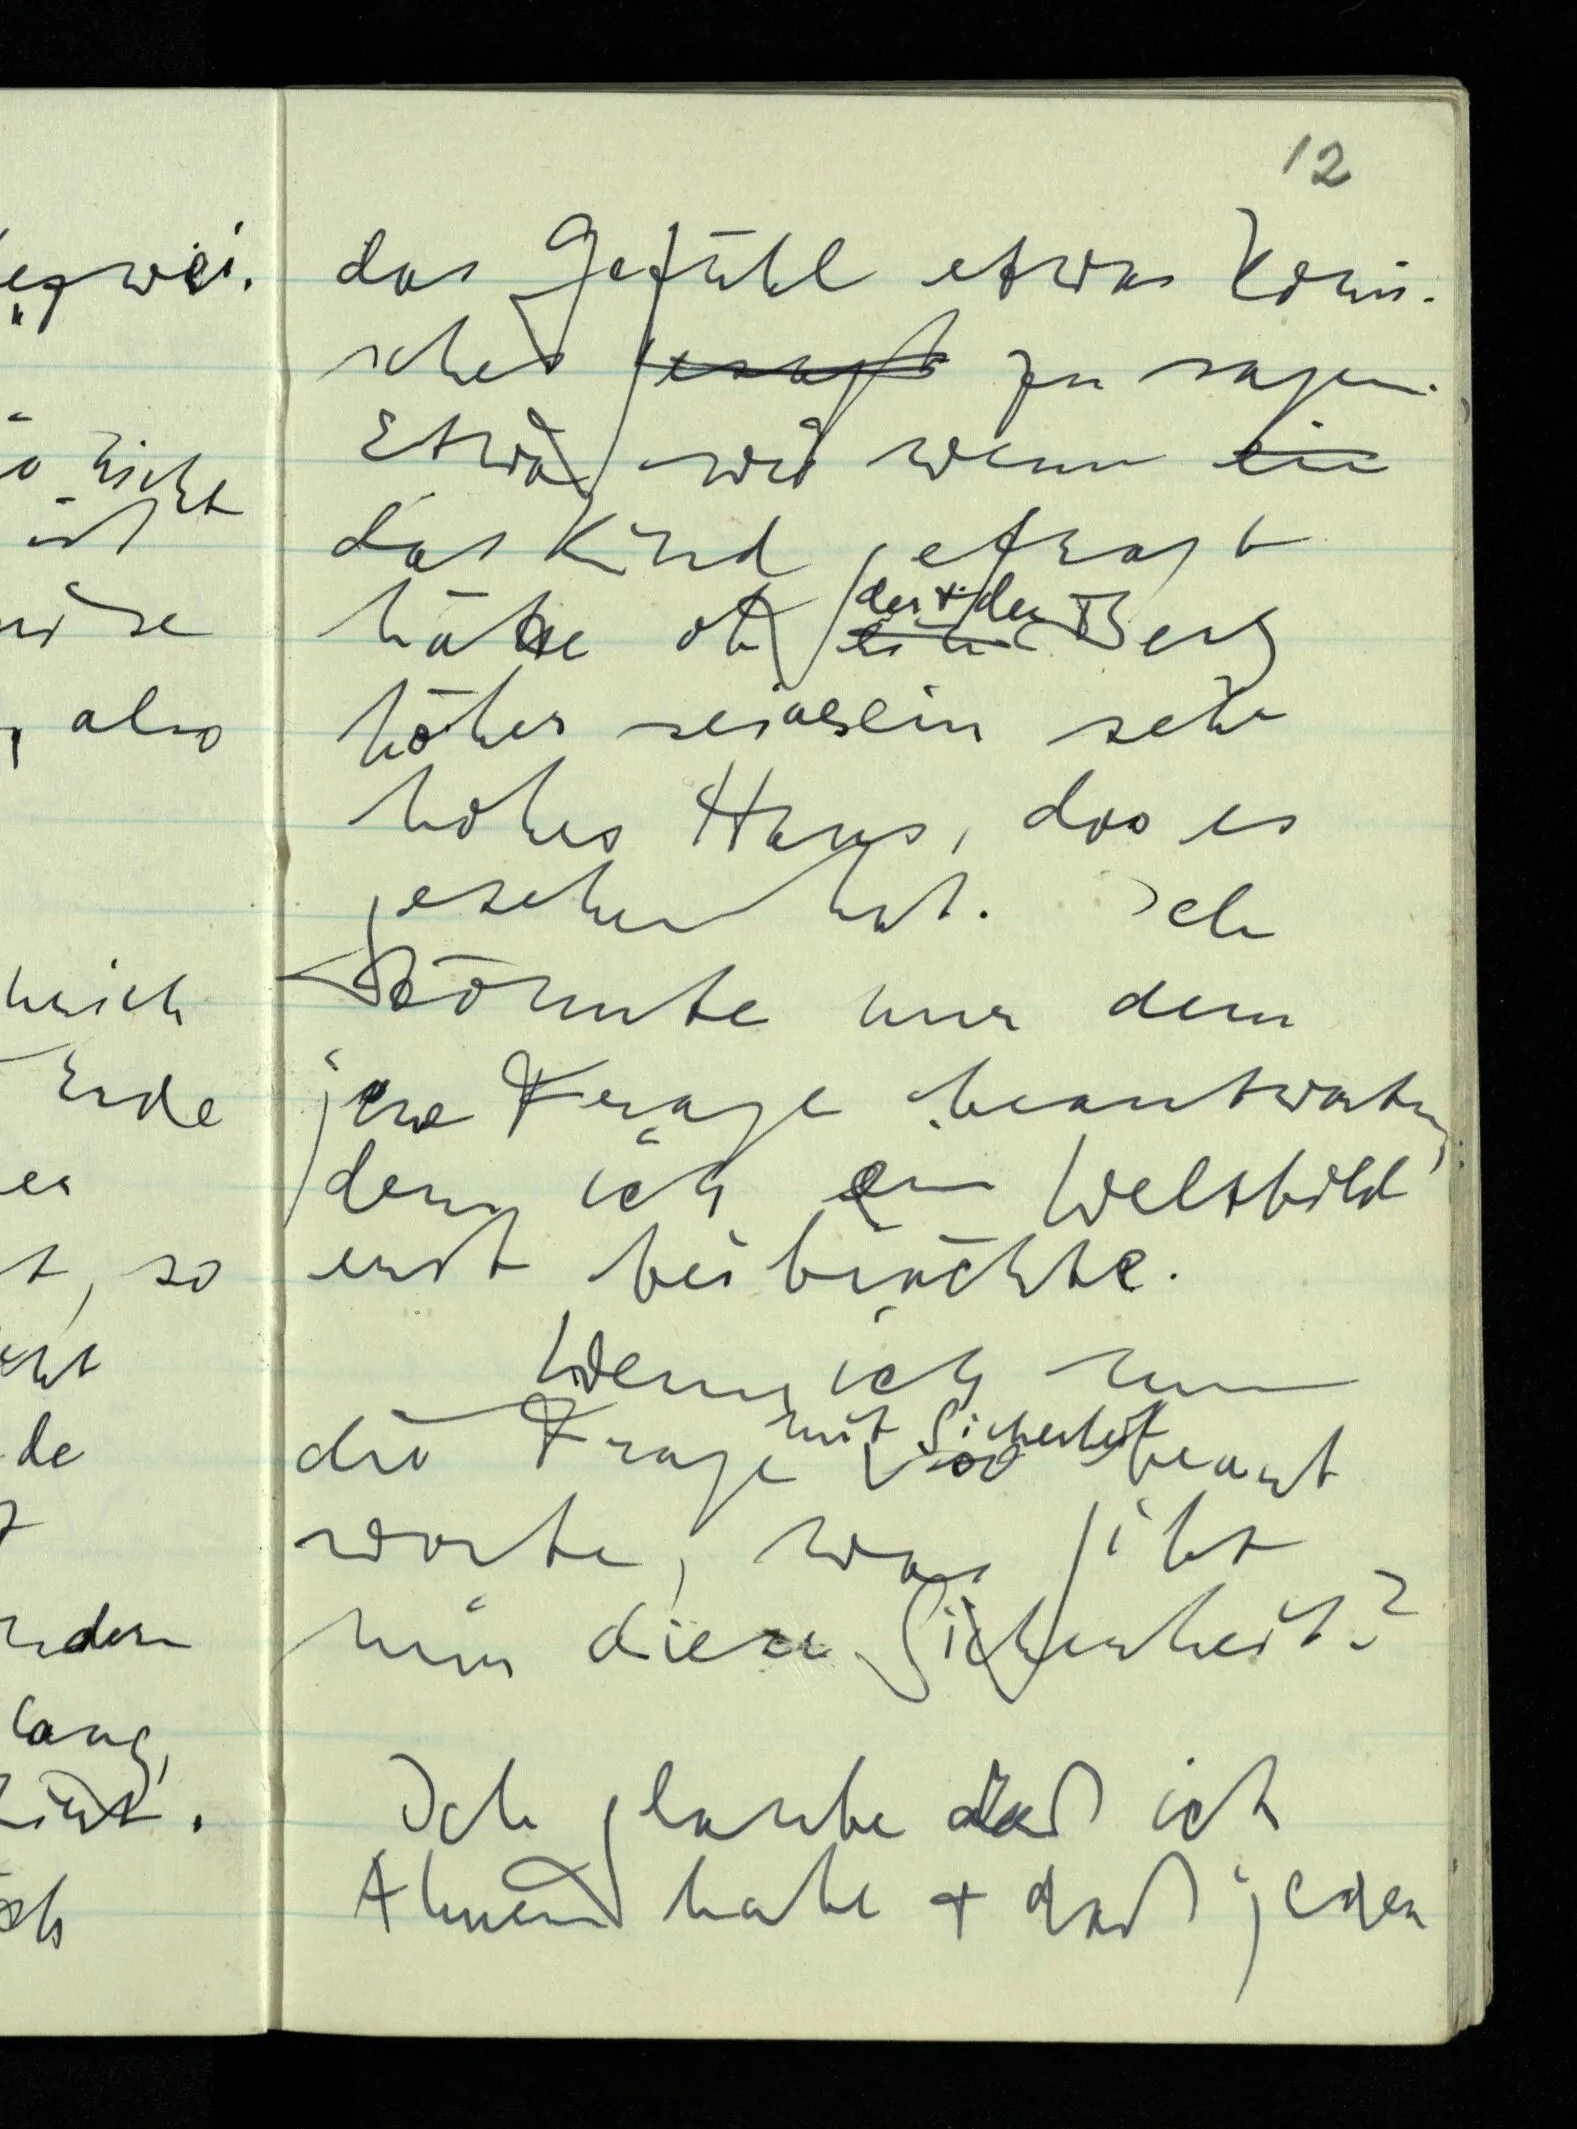 12
egwei.
nicht
ist
also
mich
Erde
t, so
de
lang,
das Gefühl etwas Komi-
sches gesagt zu sagen.
Etwa wie wenn ein
das Kind gefragt
der + der
hätte ob ein Berg
höher sei als ein sehr
hohes Haus, das es
gesehen hat. Ich
könnte nur dem
jene Frage beantworten,
dem ich ein Weltbild
erst beibrächte.
Wenn ich nun
mit Sicherheit
die Frage so beant
worte, was gibt
mir diese Sicherheit?
Ich glaube daß ich
Ahnen habe + daß jeder